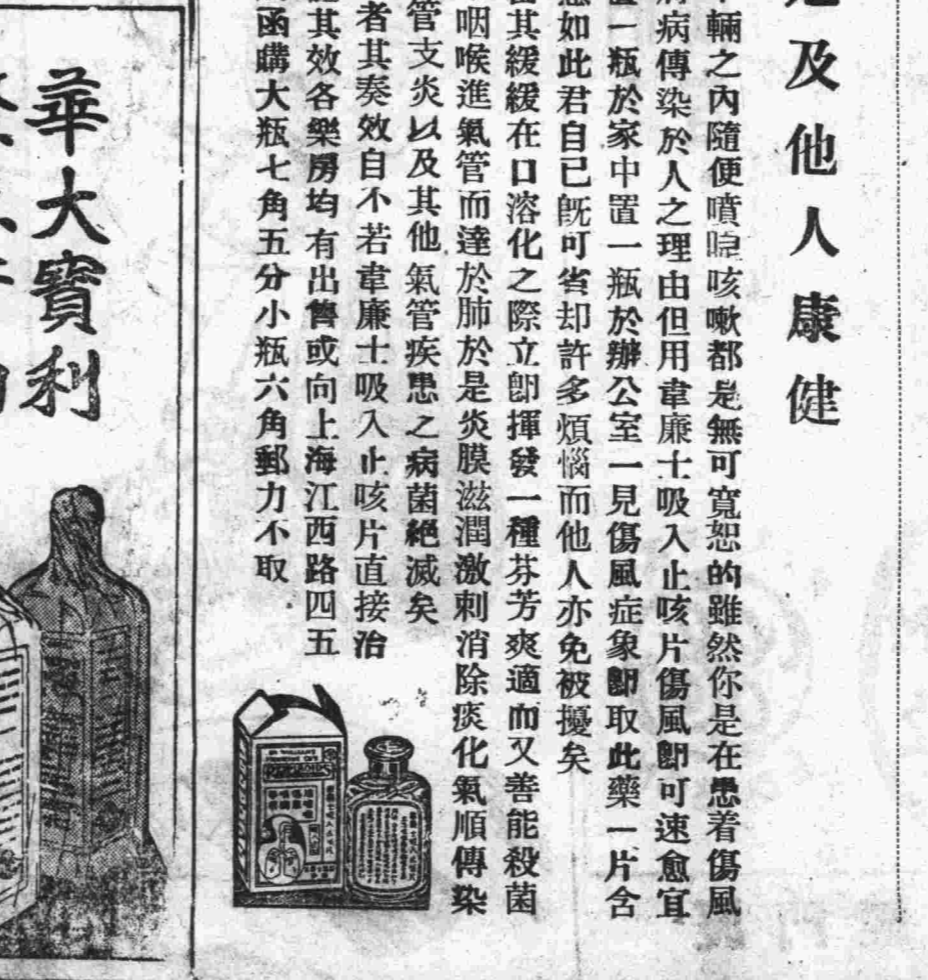 及他人康健
輛之內隨便噴嚏咳嗽都是無可寬恕的雖然你是在患着傷風
病傳染於人之理由但用韋廉士吸入止咳片傷風卽可速愈宜
一瓶於家中置一瓶於辦公室一見傷風症象卽取此藥一片含
如此君自己旣可省却許多煩惱而他人亦免被擾矣
其緩緩在口溶化之際立卽揮發一種芬芳爽適而又善能殺菌
咽喉進氣管而達於肺於是炎膜滋潤激刺消除痰化氣順傳染
管支炎以及其他氣管疾患之病菌絕滅矣
者其奏效自不若韋廉士吸入止咳片直接治
其效各藥房均有出售或向上海江西路四五
函購大瓶七角五分小瓶六角郵力不取
華大寶利